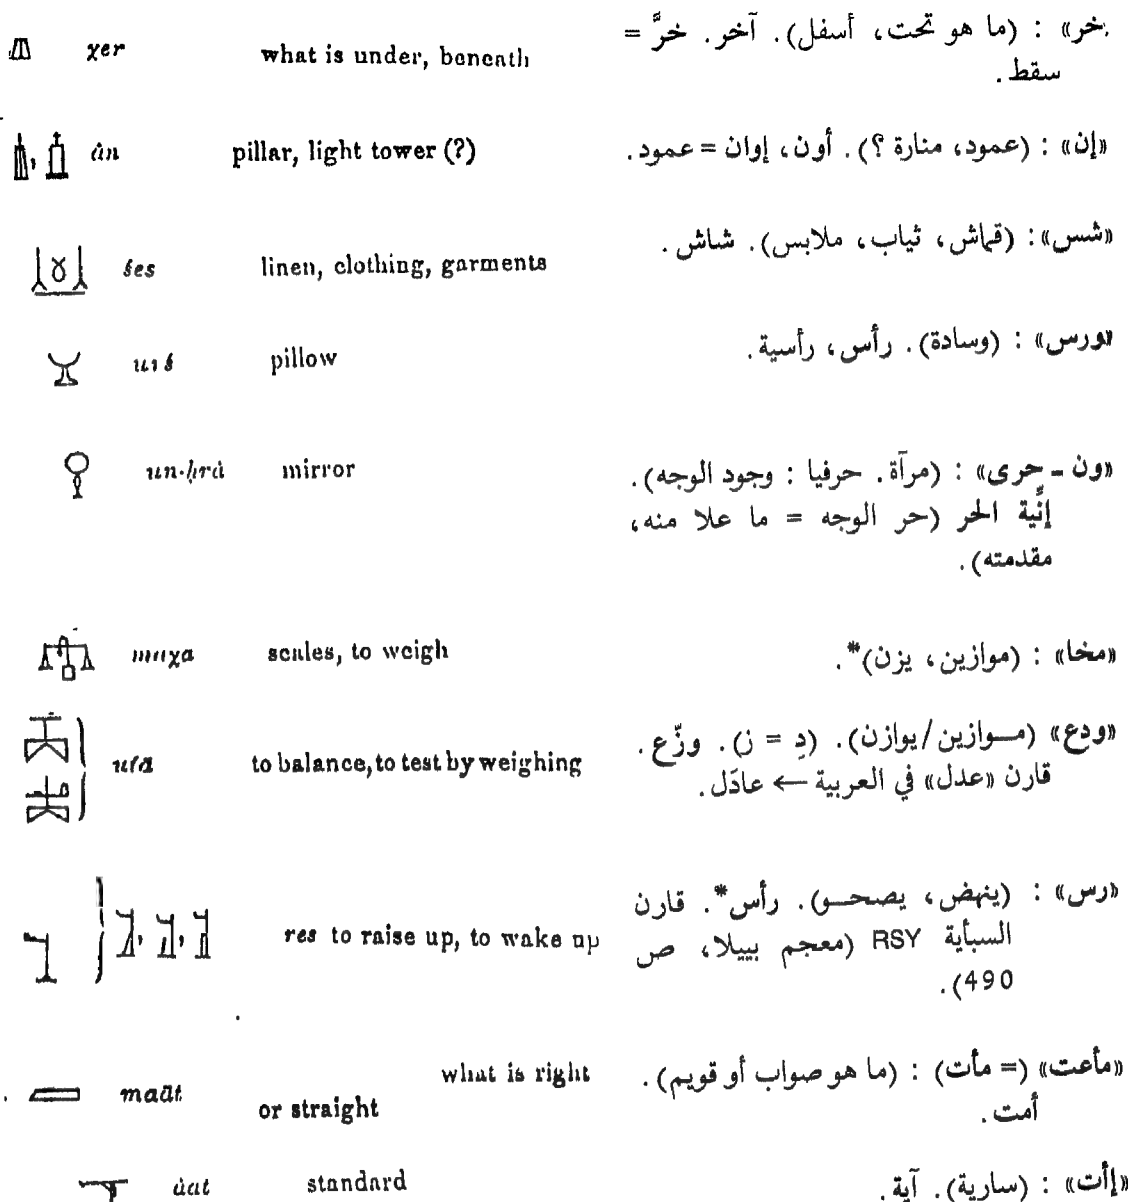 χer what is under, beneath «خر» : (ما هو تحت، أسفل). آخر. خرَّ =
سقط.
ân pillar, light tower (?) «إن» : (عمود، منارة ؟). أون، إوان = عمود.
śes linen, clothing, garments «شس» : (قماش، ثياب، ملابس). شاش.
urś pillow «ورس» : (وسادة). رأس، رأسية.
un-ḥrà mirror «ون - حرى» : (مرآة. حرفيا : وجود الوجه).
إنِّية الحر (حر الوجه = ما علا منه،
مقدمته).
maχa scales, to weigh «مخا» : (موازين، يزن)*.
to balance, to test by weighing «ودع» (مـوازين/يوازن). (دِ = ز). وزّع.
قارن «عدل» في العربية ← عادَل.
res to raise up, to wake up «رس» : (ينهض، يصحـو). رأس*. قارن
السبأية RSY (معجم بييلا، ص
490).
maāt what is right «مأعت» (= مأت) : (ما هو صواب أو قويم).
or straight أمت.
àat standard «إأت» : (سارية). آية.